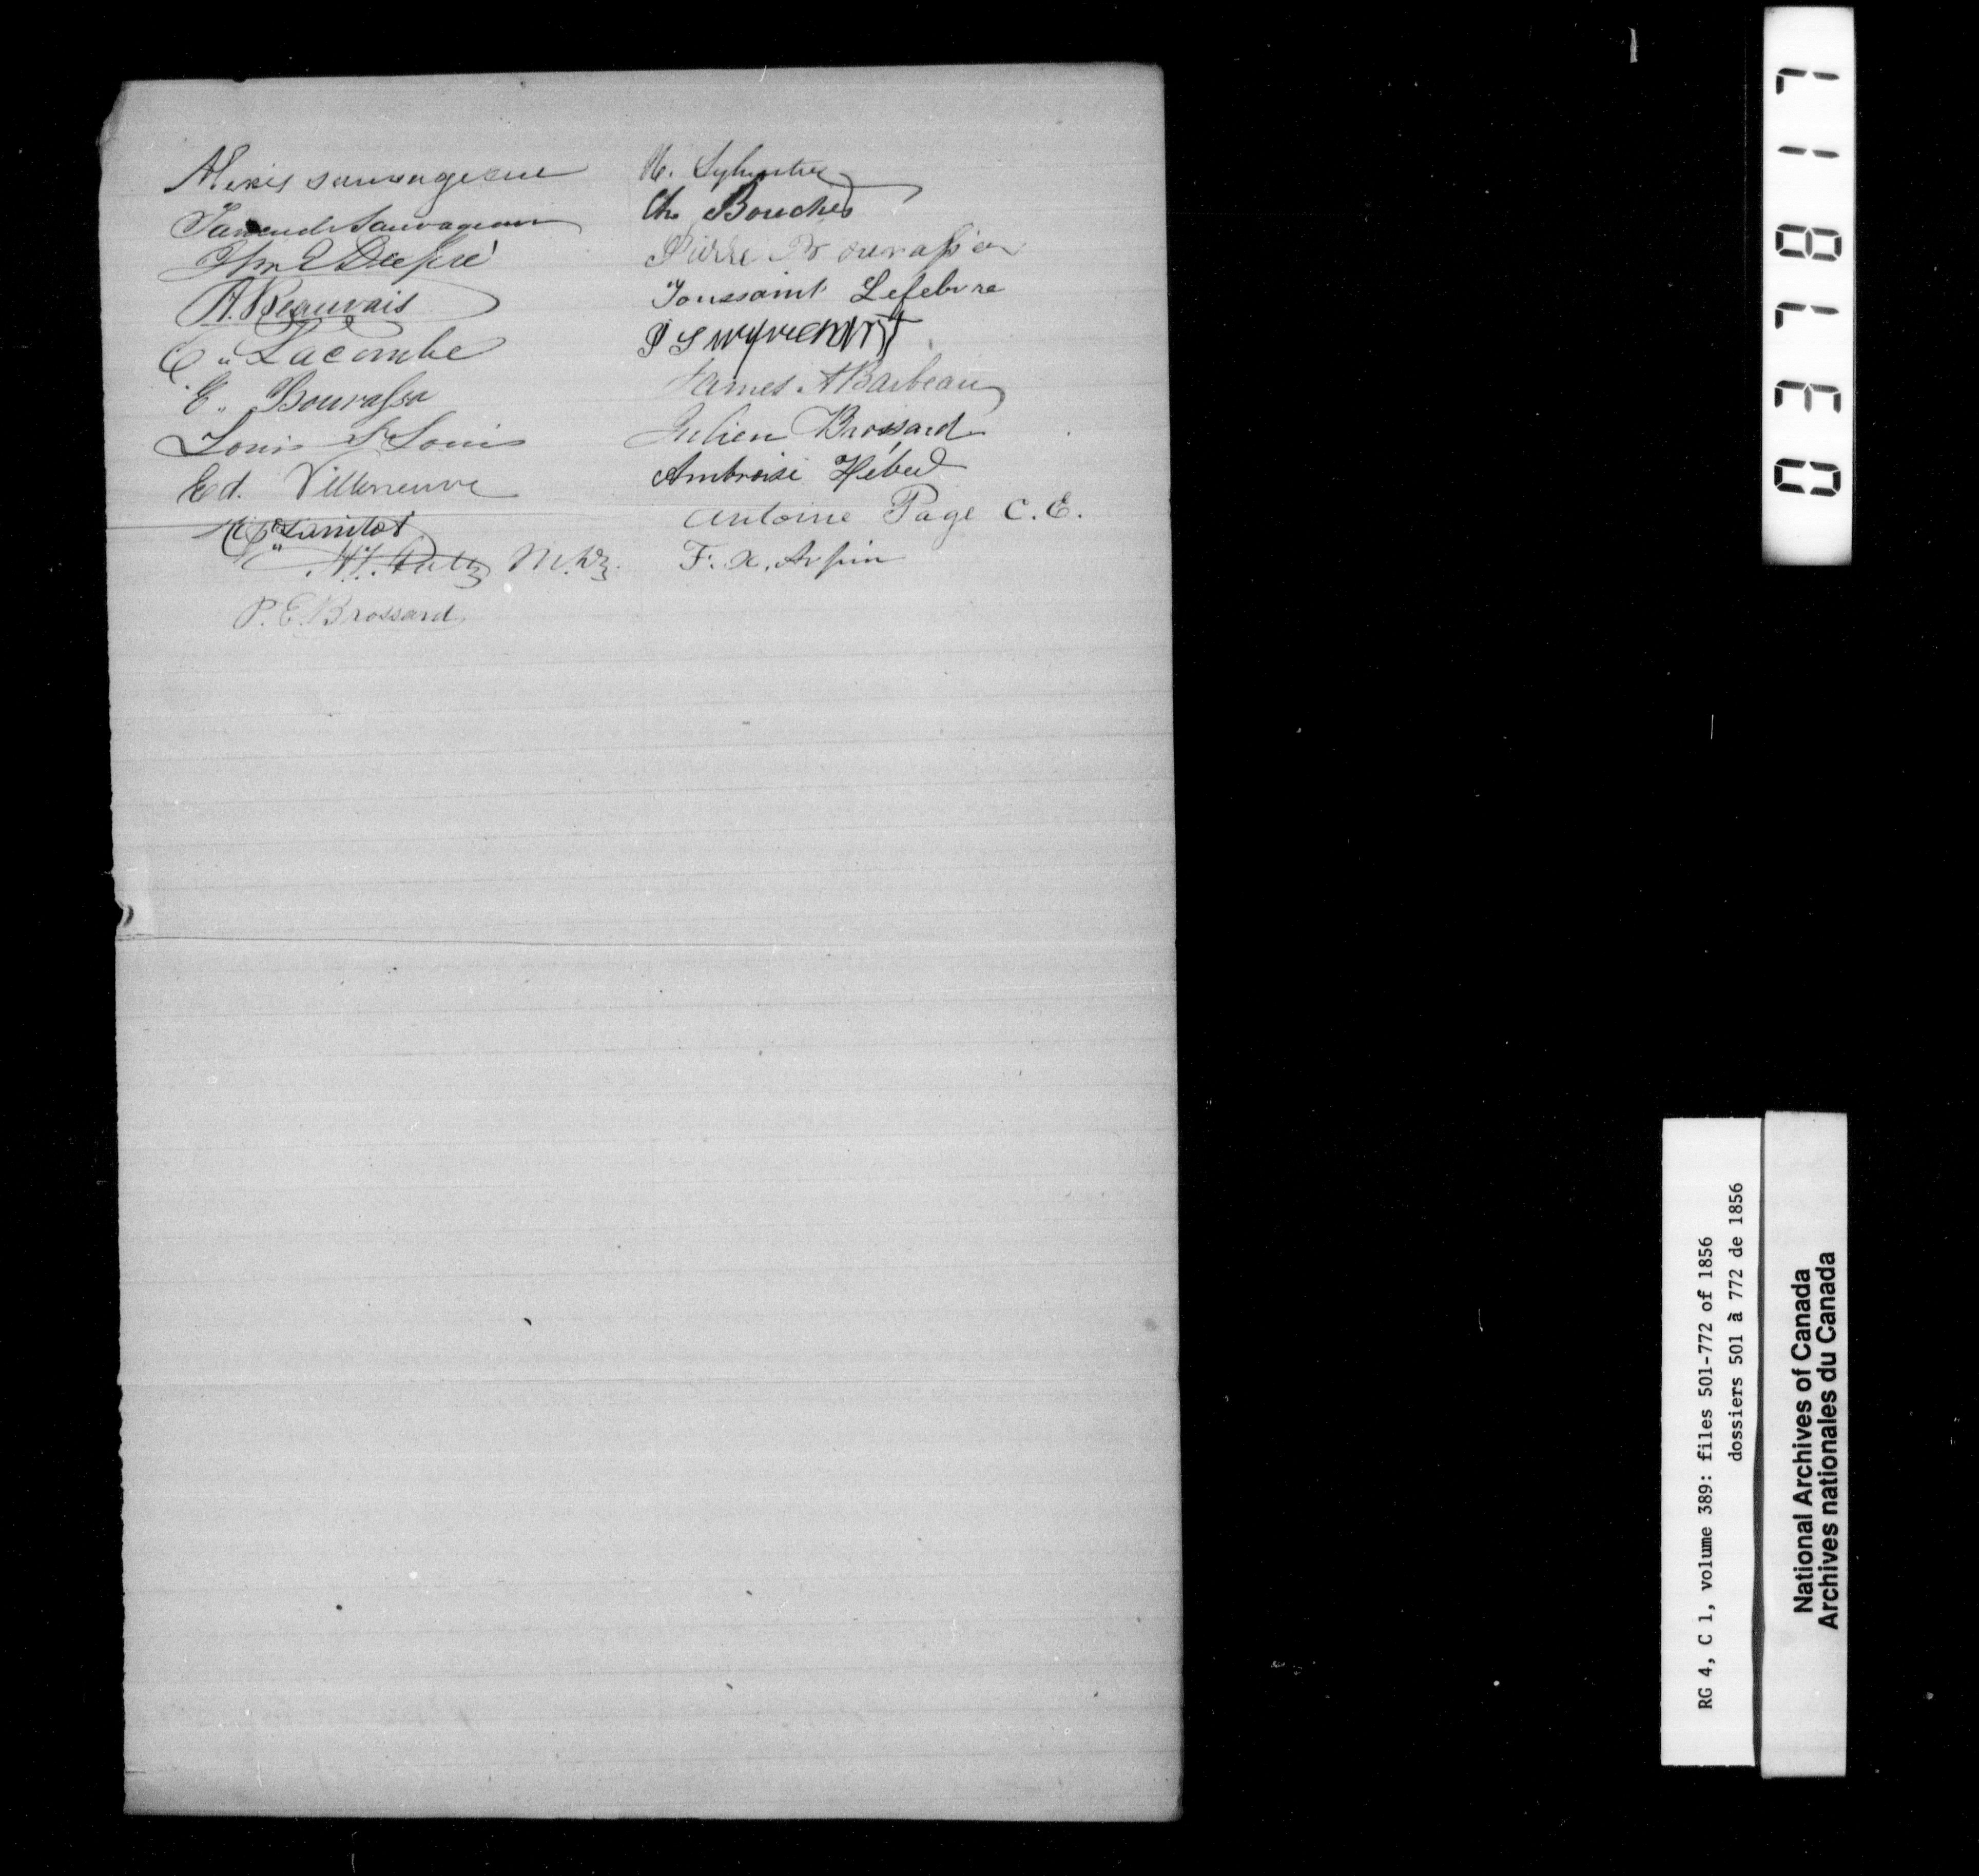 Alexis sauvageau
Sauvageau
A. Beauvais
C. Lacombe
E. Bourassa
Louis St Louis
Ed. Villeneuve
P. E. Brossard
Ch Bouche
Pierre Bourassa
Toussaint Lefebvre
James A Barbeau
Julien Brossard
Ambroise Hébert
Antoine Page C. E.
F. X. Arpin
037817
RG 4, C 1, volume 389: files 501-772 of 1856
dossiers 501 à 772 de 1856
National Archives of Canada
Archives nationales du Canada